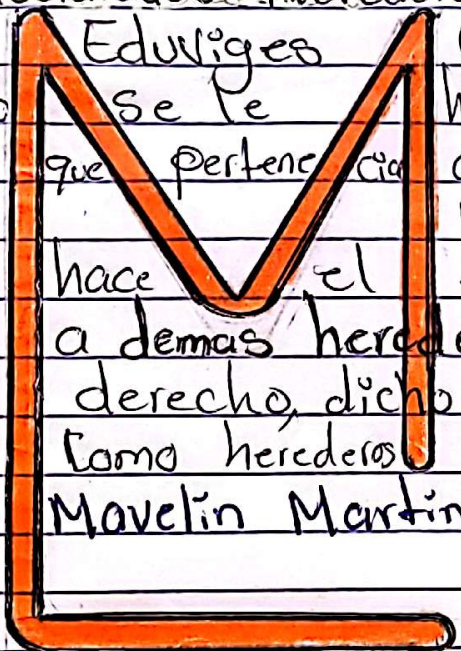 Eduviges
se le
que pertenecia
hace el
a demas herede
derecho, dicho
Como herederos
Mavelin Martin